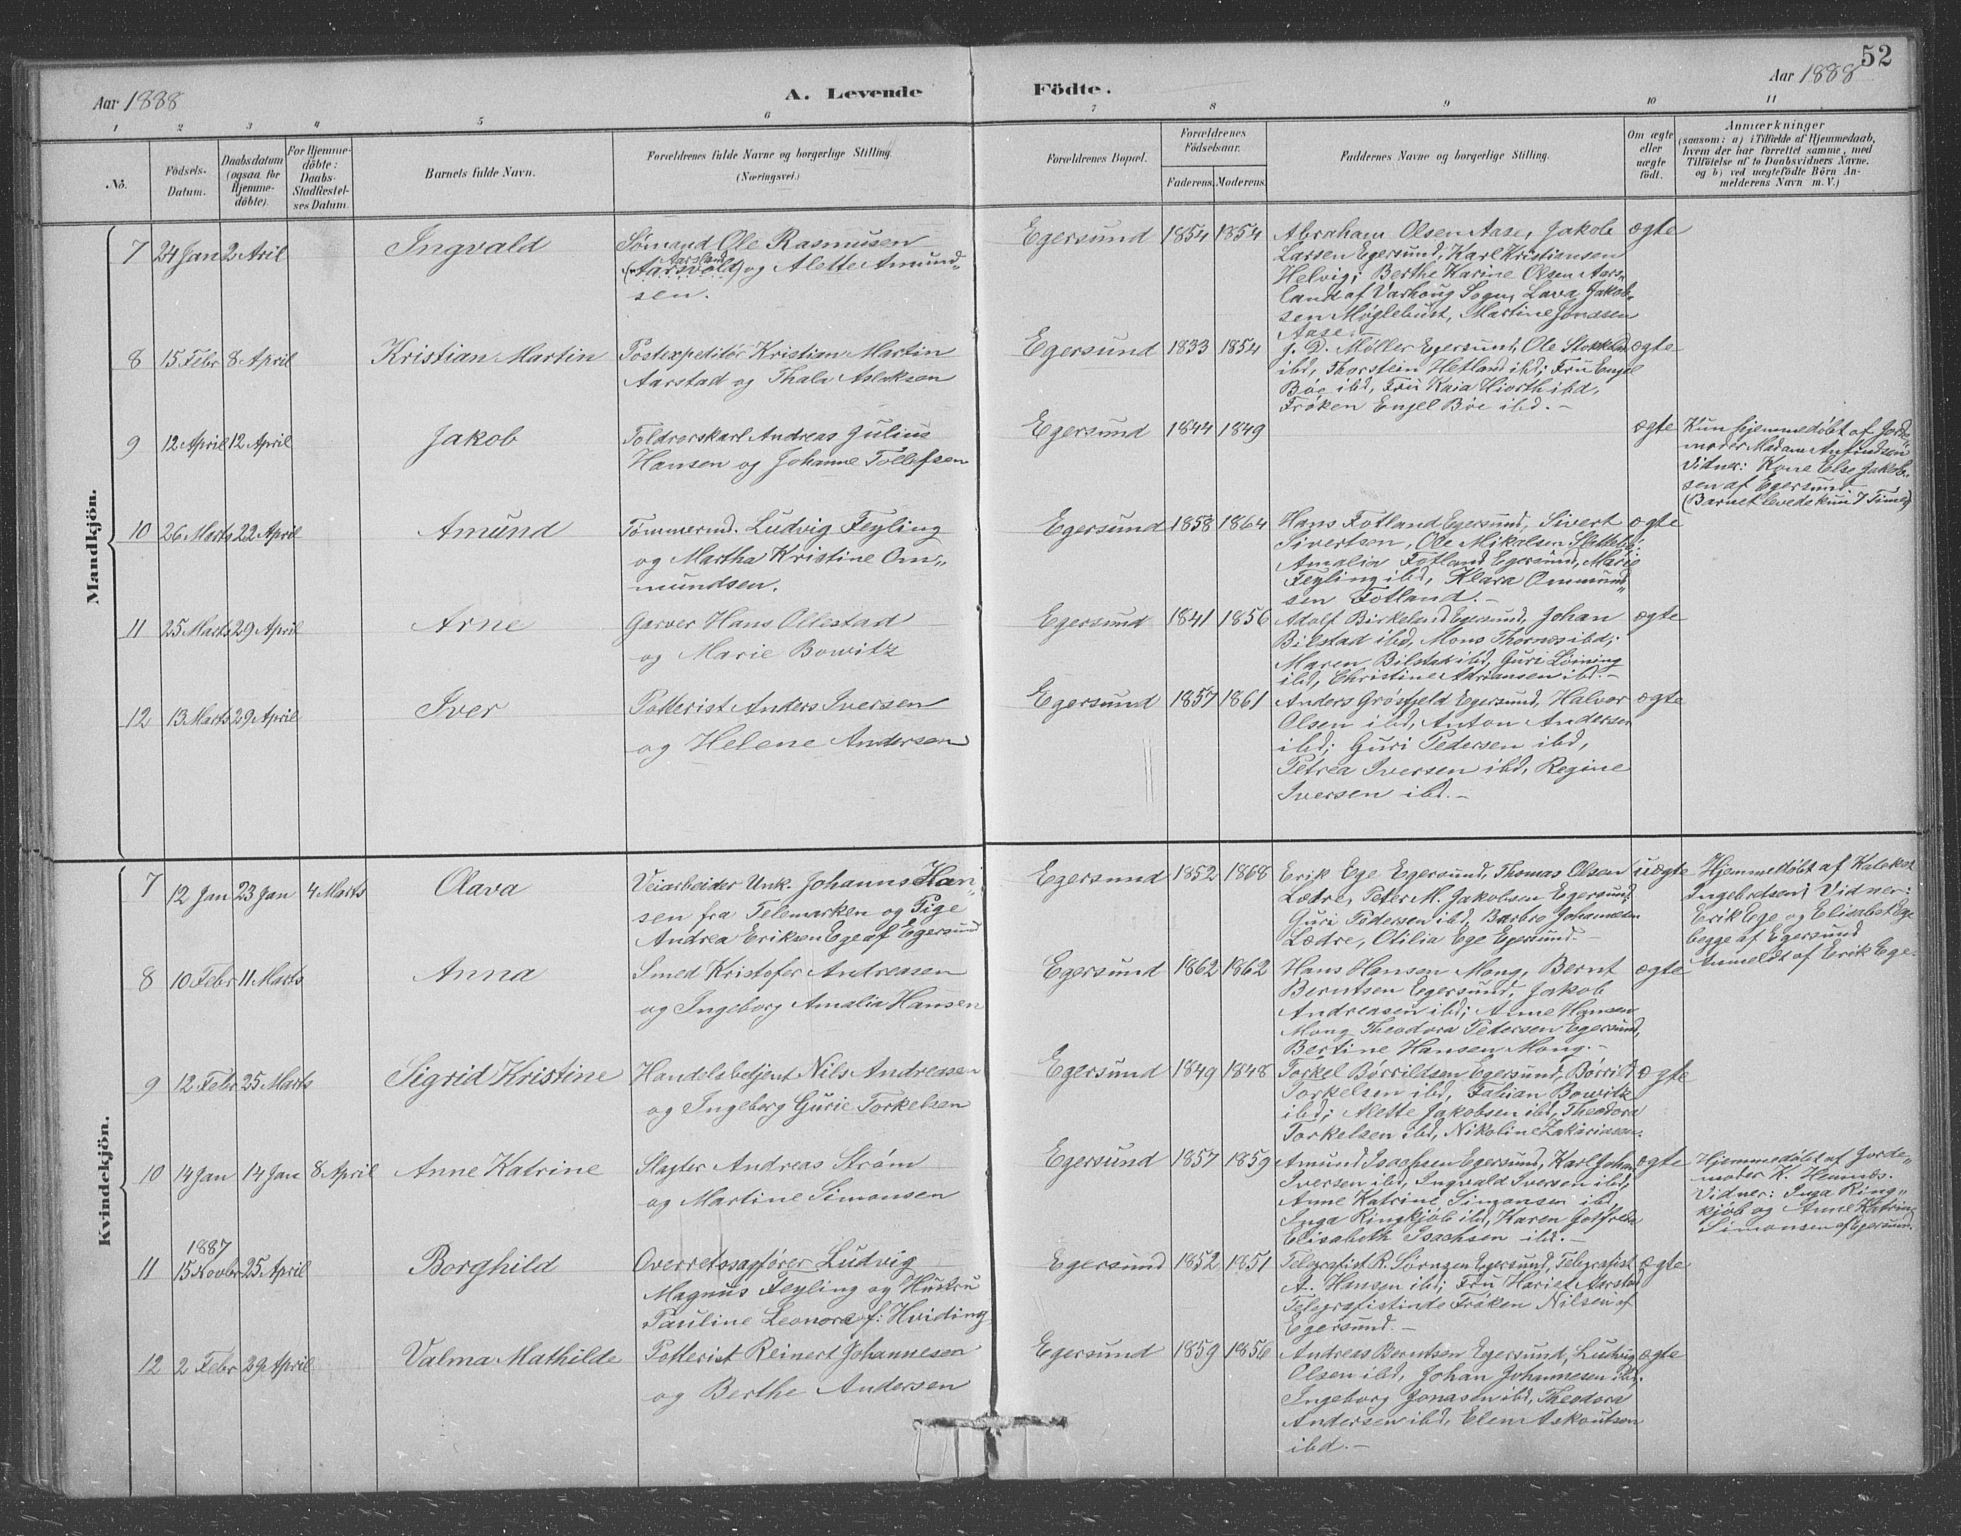 52
Aar 1888
A. Levende
Födte.
Aar 1888
1 2 3 4 5 6 7 8 9 10 11
No.
Födsels-
Datum.
Daabsdatum
(ogsaa for
Hjemme-
döbte).
For Hjemme-
döbte:
Daabs-
Stadfæstel-
ses Datum.
Barnets fulde Navn.
Forældrenes fulde Navne og borgerlige Stilling.
(Næringsvei.)
Forældrenes Bopæl.
Forældrenes
Födselsaar.
Faderens. Moderens.
Faddernes Navne og borgerlige Stilling.
Om ægte
eller
uægte
født.
Anmærkninger
(saasom: a) i Tilfælde af Hjemmedaab,
hvem der har forrettet samme, med
Tilföielse af to Daabsvidners Navne.
og b) ved uægtefödte Börn An-
melderens Navn m. V.)
Mandkjön.
7 24 Jan 2 April Ingvald
Sømand Ole Rasmusen
Aarsland
(Aarsvold) og Alette Amund-
sen.
Egersund 1854 1854
Abraham Olsen Aase, Jakob
Larsen Egersund, Karl Kristiansen
Helvig; Berthe Karine Olsen Aars-
land af Varhoug Sogn, Lava Jakob-
sen Møglebust, Martine Jonasen
Aase.
ægte
8 15 Febr 8 April Kristian Martin
Postexpeditør Kristian Martin
Aarstad og Thala Aslaksen
Egersund 1833 1854
J. D. Møller Egersund, Ole Stokkeland
ibd, Thorstein Hetland ibd; Fru Engel
Bøe ibd, Fru Kaia Hiorth ibd,
Frøken Engel Bøe ibd.-
ægte
9 12 April 12 April Jakob
Toldrorskarl Andreas Julius
Hansen og Johanne Tollefsen
Egersund 1844 1849
ægte
Kun hjemmedøbt af Jorde-
moder Madam Anfindsen
Vidner: Kone Else Jakob-
sen af Egersund
(Barnet levede kun 7 Timer)
10 26 Marts 22 April Amund
Tømmermd. Ludvig Feyling
og Martha Kristine Om-
mundsen.
Egersund 1858 1864
Hans Fotland Egersund, Sivert
Sivertsen, Ole Mikalsen Slettebø;
Amalia Fotland Egersund, Marie
Feyling ibd, Klara Ommund-
sen Fotland.-
ægte
11 25 Marts 29 April Arne
Garver Hans Ollestad
og Marie Bowitz
Egersund 1841 1856
Adolf Birkeland Egersund, Johan
Bilstad ibd, Mons Thornes ibd;
Maren Bilstad ibd, Guri Løining
ibd, Christine Adriansen ibd.-
ægte
12 13 Marts 29 April Iver
Potterist Anders Iversen
og Helene Andersen
Egersund 1857 1861
Anders Grøsfjeld Egersund, Halvor
Olsen ibd, Anton Andersen
ibd; Guri Pedersen ibd,
Petrea Iversen ibd, Regine
Iversen ibd.-
ægte
Kvindekjön.
7 12 Jan 23 Jan 4 Marts Olava
Veiarbeider Unk. Johanns Han-
sen fra Telemarken og Pige
Andrea Eriksen Ege af Egersund
Egersund 1852 1868
Erik Ege Egersund, Thomas Olsen
Lædre, Peter M. Jakobsen Egersund;
Guri Pedersen ibd, Barbro Johannesen
Lædre, Otilia Ege Egersund.-
uægte
Hjemmedøbt af Kateket
Ingebretsen; Vidner:
Erik Ege og Elisabet Ege
begge af Egersund
Anmeldt af Erik Ege.
8 10 Febr 11 Marts Anna
Smed Kristofer Andreasen
og Ingeborg Amalia Hansen
Egersund 1862 1862
Hans Hansen Mong, Bernt
Berntsen Egersund, Jakob
Andreasen ibd; Anne Hansen
Mong, Theodora Pedersen Egersund,
Bertine Hansen Mong.-
ægte
9 12 Febr 25 Marts Sigrid Kristine
Handelsbetjent Nils Andreasen
og Ingeborg Gurie Torkelsen
Egersund 1849 1848
Torkel Børrildsen Egersund, Børrild
Torkelsen ibd, Fabian Bowitz
ibd; Alette Jakobsen ibd, Theodora
Torkelsen ibd, Nikoline Zakariasen.
ægte
10 14 Jan 14 Jan 8 April Anne Katrine
Slagter Andreas Strøm
og Martine Simonsen
Egersund 1857 1859
Amund Isachsen Egersund, Karl Johan
Iversen ibd, Ingvald Iversen ibd;
Anne Katrine Simonsen ibd,
Inga Ringkjøb ibd, Karen Gotfreda
Elisabeth Isachsen ibd.-
ægte
Hjemmedøbt af Jorde-
moder K. Hennes.
Vidner: Inga Ring-
kjøb og Anne Katrin
Simonsen af Egersund.
1887
11 15 Novbr 25 April Borghild
Overretssagfører Ludvig
Magnus Feyling og Hustru
Pauline Leonora f: Hviding
Egersund 1852 1851
Telegrafist R. Sørensen Egersund, Telegrafist
A. Hansen ibd; Fru Hariet Aarstad
Telegrafistinde Frøken Nilsen af
Egersund.-
ægte
12 2 Febr 29 April Valma Mathilde
Potterist Reinert Johannesen
og Berthe Andersen
Egersund 1859 1856
Andreas Berntsen Egersund, Ludvig
Olsen ibd, Johan Johannesen ibd;
Ingeborg Jonasen ibd, Theodora
Andersen ibd, Elen Askoutsen
ibd.-
ægte